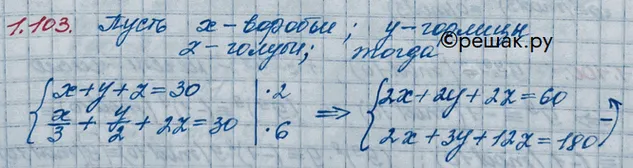 1.103. Пусть x - воробьи; y - горлицы
z - голуби; тогда ©решак.ру
{ x+y+z=30 | ·2 ⇒ { 2x+2y+2z=60
{ x/3 + y/2 + 2z = 30 | ·6 { 2x+3y+12z=180 -